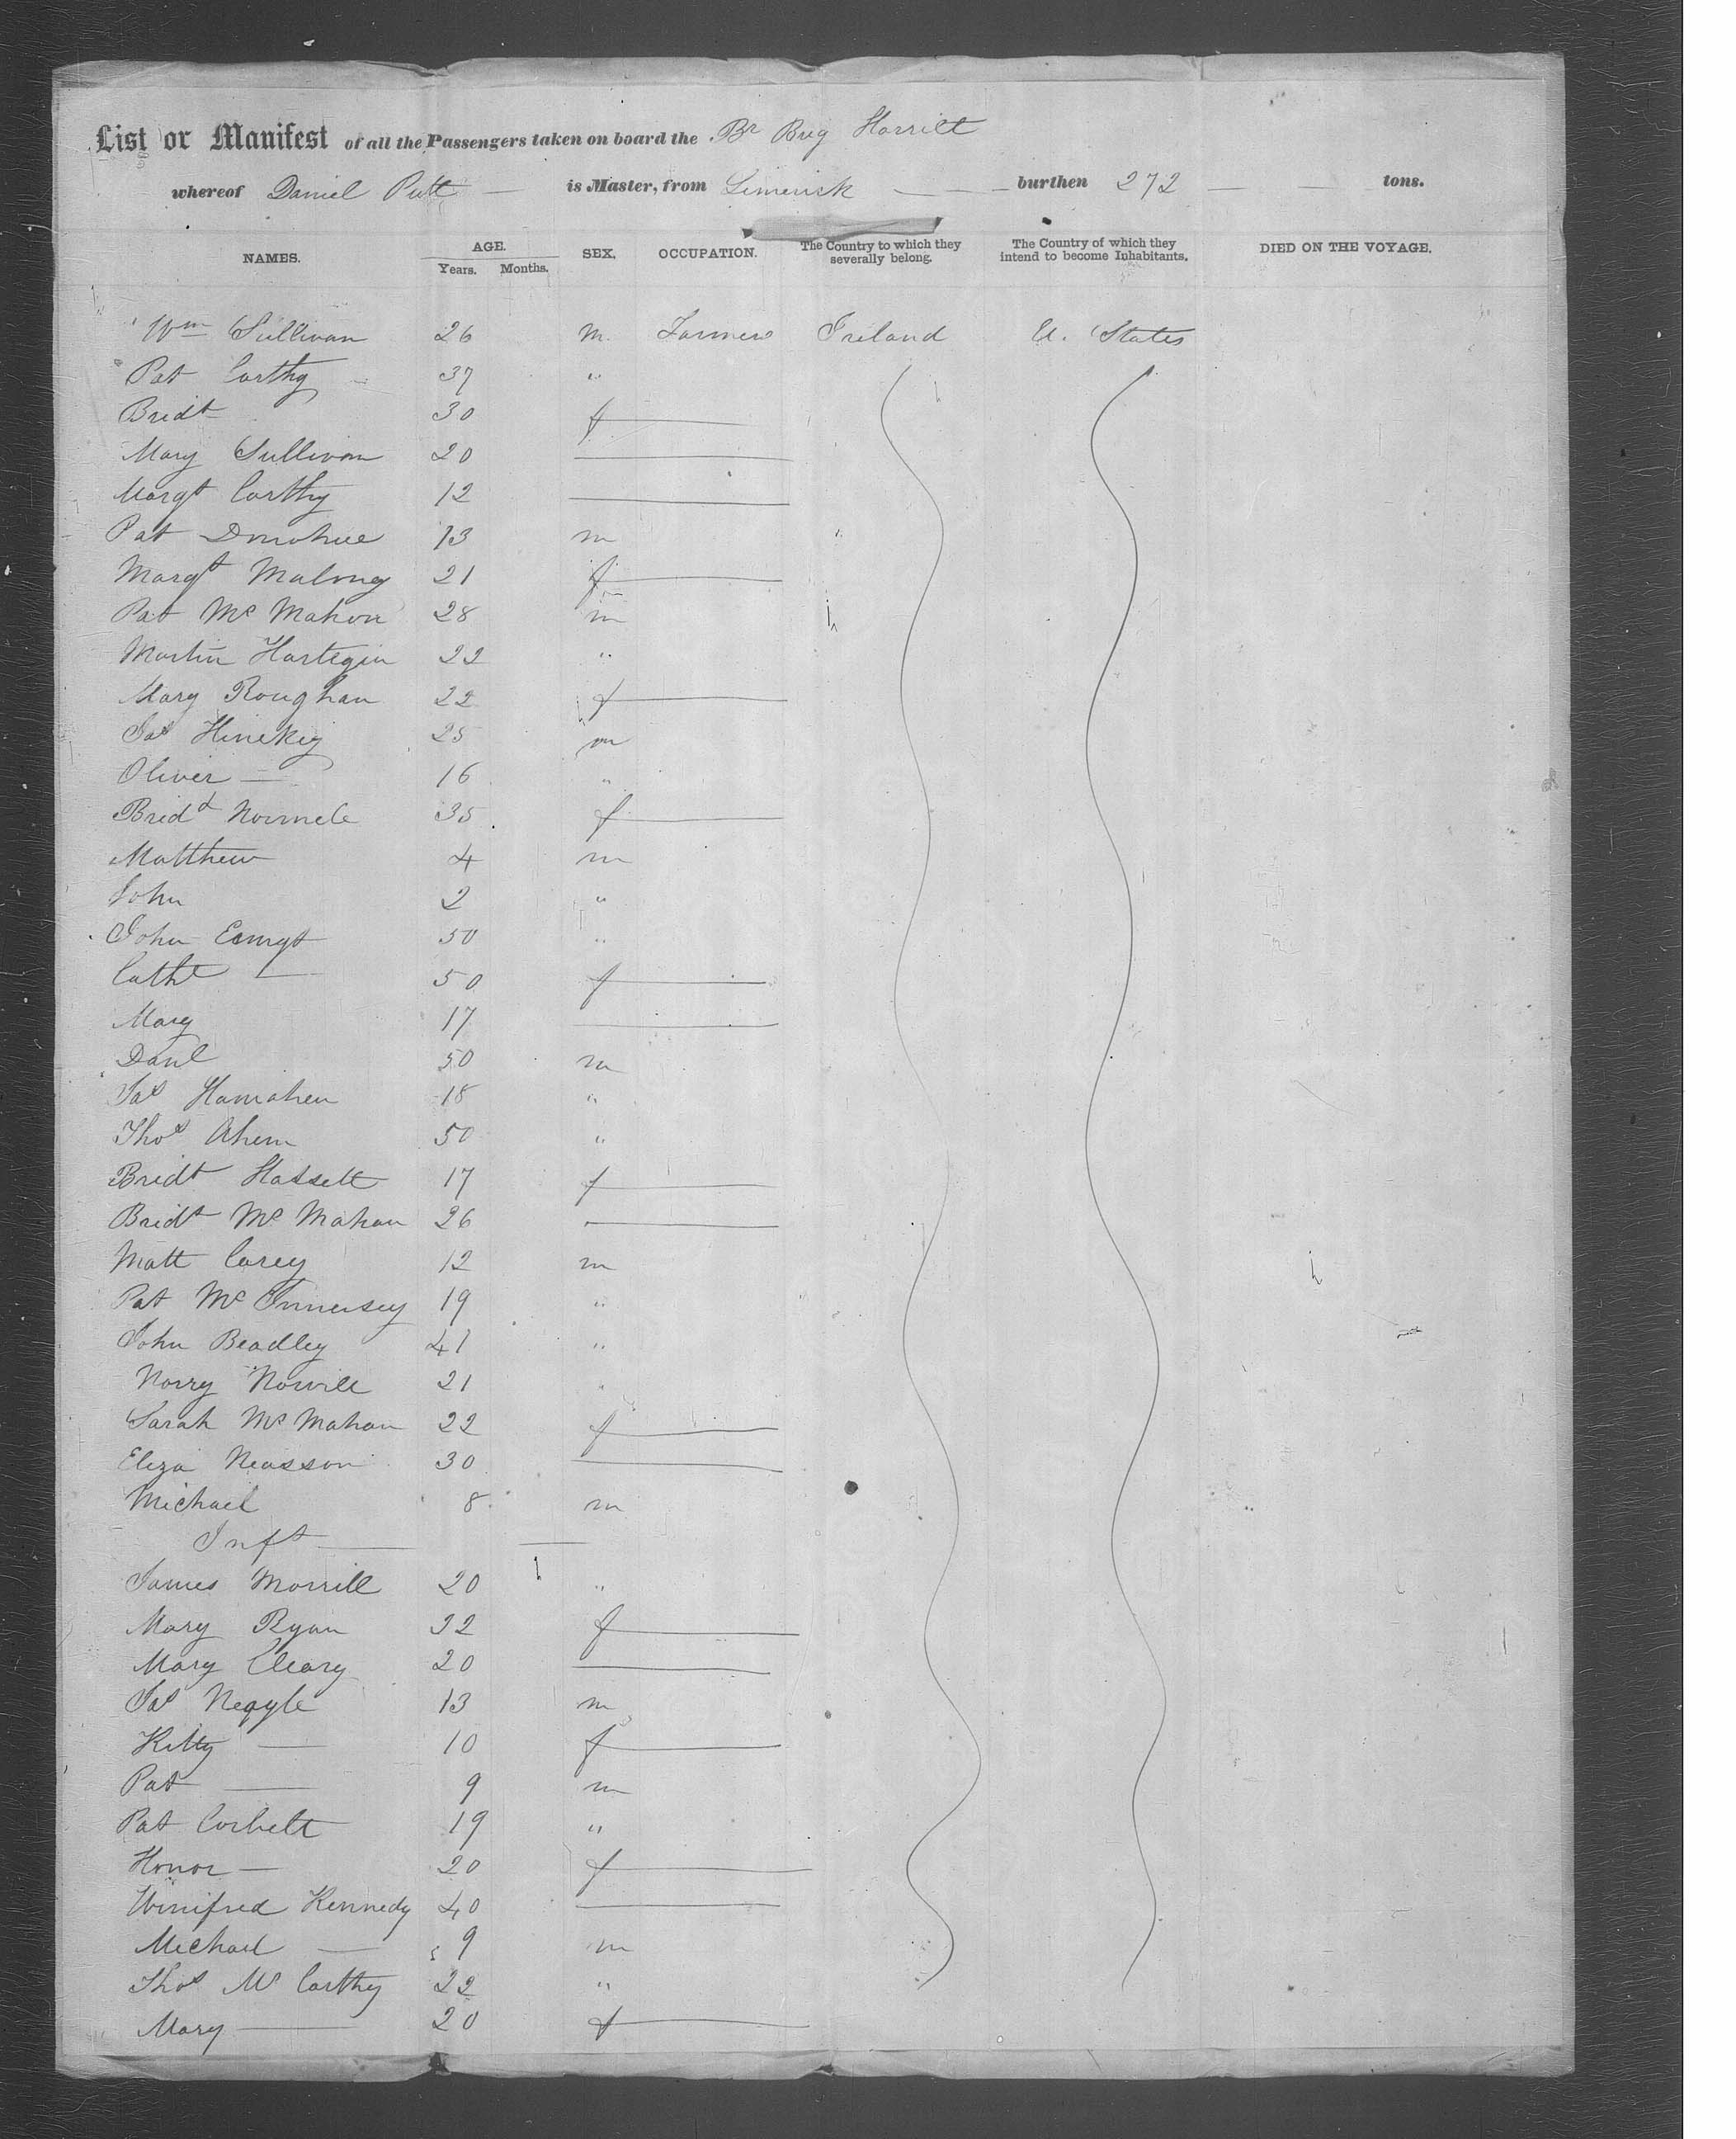 List or Manifest of all the Passengers taken on board the Br Brig Harriet
whereof Daniel Putt is Master, from Limerick burthen 272 tons.
NAMES. AGE. Years. Months. SEX. OCCUPATION. The Country to which they severally belong. The Country of which they intend to become Inhabitants. DIED ON THE VOYAGE.
Wm Sullivan 26 m. Farmers Ireland U. States
Pat Carthy 37 "
Bridt 30 f
Mary Sullivan 20
Margt Carthy 12
Pat Donohue 13 m "
Margt Malony 21 f
Pat Mc Mahon 28 m
Martin Hartigin 22 "
Mary Roughan 22 f
Jas 25 m
Oliver — 16 "
Bridt Normele 35 f
Matthew 4 m
John 2 "
John 50 "
Cathe — 50 f
Mary 17
Danl 50 m
Jas Hanrahen 18 "
Thos Ahern 50 "
Bridt Hassett 17 f
Bridt Mc Mahon 26
Matt Carey 12 m
Pat 19 "
John Beadley 41 "
Norry 21 "
Sarah Mc Mahon 22 f
Eliza Neasson 30
Michael 8 m
Inft —
James Morrill 20 "
Mary Ryan 32 f
Mary Cleary 20
Jas Neqyle 13 m
Kitty — 10 f
Pat — 9 m
Pat Corbett 19 "
Honor — 20 f
Winifred Kennedy 40
Michael — 9 m
Thos Mc Carthy 22 "
Mary — 20 f